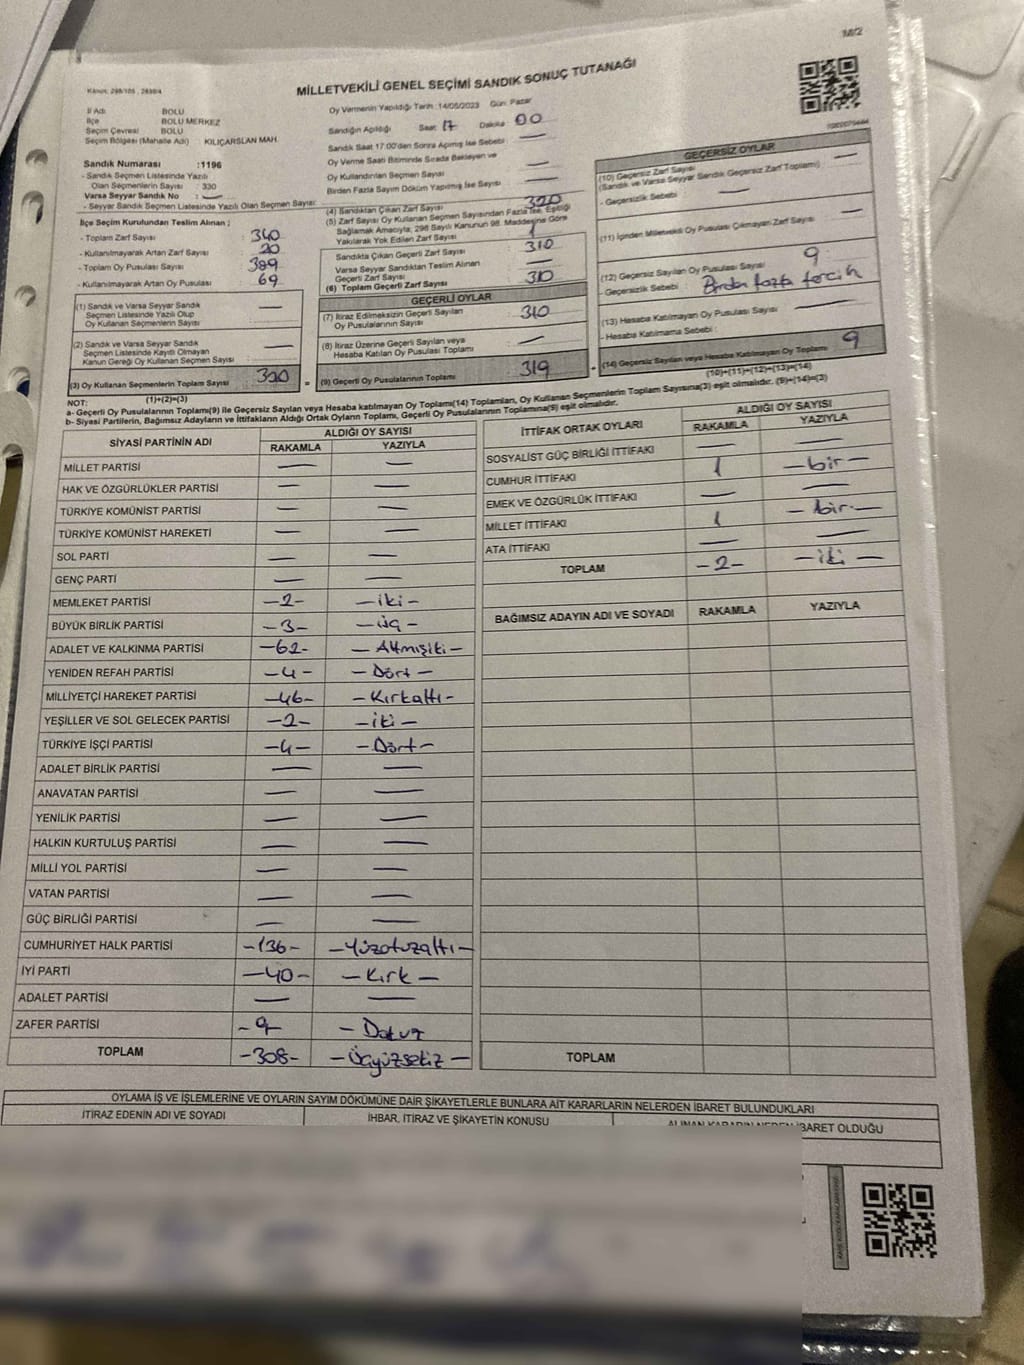 MV/2
Kanun: 298/105 , 2839/4
MİLLETVEKİLİ GENEL SEÇİMİ SANDIK SONUÇ TUTANAĞI
İl Adı BOLU
İlçe BOLU MERKEZ
Seçim Çevresi BOLU
Seçim Bölgesi (Mahalle Adı) KILIÇARSLAN MAH.
Sandık Numarası :1196
- Sandık Seçmen Listesinde Yazılı
Olan Seçmenlerin Sayısı : 330
Varsa Seyyar Sandık No : —
- Seyyar Sandık Seçmen Listesinde Yazılı Olan Seçmen Sayısı:
Oy Vermenin Yapıldığı Tarih :14/05/2023 Gün: Pazar
Sandığın Açıldığı Saat: 17 Dakika: 00
Sandık Saat 17:00'den Sonra Açılmış İse Sebebi : —
Oy Verme Saati Bitiminde Sırada Bekleyen ve
Oy Kullandırılan Seçmen Sayısı —
Birden Fazla Sayım Döküm Yapılmış İse Sayısı —
İlçe Seçim Kurulundan Teslim Alınan ;
- Toplam Zarf Sayısı : 340
- Kullanılmayarak Artan Zarf Sayısı : 20
- Toplam Oy Pusulası Sayısı : 389
- Kullanılmayarak Artan Oy Pusulası : 69
(1) Sandık ve Varsa Seyyar Sandık
Seçmen Listesinde Yazılı Olup
Oy Kullanan Seçmenlerin Sayısı —
(2) Sandık ve Varsa Seyyar Sandık
Seçmen Listesinde Kayıtlı Olmayan
Kanun Gereği Oy Kullanan Seçmen Sayısı —
(3) Oy Kullanan Seçmenlerin Toplam Sayısı 320
(1)+(2)=(3)
(4) Sandıktan Çıkan Zarf Sayısı : 320
(5) Zarf Sayısı Oy Kullanan Seçmen Sayısından Fazla İse, Eşitliği
Sağlamak Amacıyla, 298 Sayılı Kanunun 98. Maddesine Göre
Yakılarak Yok Edilen Zarf Sayısı
Sandıkta Çıkan Geçerli Zarf Sayısı : 310
Varsa Seyyar Sandıktan Teslim Alınan
Geçerli Zarf Sayısı : —
(6) Toplam Geçerli Zarf Sayısı : 310
GEÇERLİ OYLAR
(7) İtiraz Edilmeksizin Geçerli Sayılan
Oy Pusulalarının Sayısı 310
(8) İtiraz Üzerine Geçerli Sayılan veya
Hesaba Katılan Oy Pusulası Toplamı —
(9) Geçerli Oy Pusulalarının Toplamı 319
GEÇERSİZ OYLAR
(10) Geçersiz Zarf Sayısı —
(Sandık ve Varsa Seyyar Sandık Geçersiz Zarf Toplamı)
- Geçersizlik Sebebi : —
(11) İçinden Milletvekili Oy Pusulası Çıkmayan Zarf Sayısı —
(12) Geçersiz Sayılan Oy Pusulası Sayısı 9
- Geçersizlik Sebebi : Birden fazla tercih
(13) Hesaba Katılmayan Oy Pusulası Sayısı —
- Hesaba Katılmama Sebebi :
(14) Geçersiz Sayılan veya Hesaba Katılmayan Oy Toplamı 9
(10)+(11)+(12)+(13)=(14)
NOT:
a- Geçerli Oy Pusulalarının Toplamı(9) ile Geçersiz Sayılan veya Hesaba katılmayan Oy Toplamı(14) Toplamları, Oy Kullanan Seçmenlerin Toplam Sayısına(3) eşit olmalıdır. (9)+(14)=(3)
b- Siyasi Partilerin, Bağımsız Adayların ve İttifakların Aldığı Ortak Oyların Toplamı, Geçerli Oy Pusulalarının Toplamına(9) eşit olmalıdır.
SİYASİ PARTİNİN ADI ALDIĞI OY SAYISI
RAKAMLA YAZIYLA
MİLLET PARTİSİ — —
HAK VE ÖZGÜRLÜKLER PARTİSİ — —
TÜRKİYE KOMÜNİST PARTİSİ — —
TÜRKİYE KOMÜNİST HAREKETİ — —
SOL PARTİ — —
GENÇ PARTİ — —
MEMLEKET PARTİSİ -2- -iki-
BÜYÜK BİRLİK PARTİSİ -3- -üç-
ADALET VE KALKINMA PARTİSİ -62- - Altmışiki -
YENİDEN REFAH PARTİSİ -4- - Dört -
MİLLİYETÇİ HAREKET PARTİSİ -46- - Kırkaltı -
YEŞİLLER VE SOL GELECEK PARTİSİ -2- - iki -
TÜRKİYE İŞÇİ PARTİSİ -4- - Dört -
ADALET BİRLİK PARTİSİ — —
ANAVATAN PARTİSİ — —
YENİLİK PARTİSİ — —
HALKIN KURTULUŞ PARTİSİ — —
MİLLİ YOL PARTİSİ — —
VATAN PARTİSİ — —
GÜÇ BİRLİĞİ PARTİSİ — —
CUMHURİYET HALK PARTİSİ -136- - Yüzotuzaltı -
İYİ PARTİ -40- - Kırk -
ADALET PARTİSİ — —
ZAFER PARTİSİ -9- - Dokuz
TOPLAM -308- - Üçyüzsekiz -
İTTİFAK ORTAK OYLARI ALDIĞI OY SAYISI
RAKAMLA YAZIYLA
SOSYALİST GÜÇ BİRLİĞİ İTTİFAKI — —
CUMHUR İTTİFAKI 1 - bir -
EMEK VE ÖZGÜRLÜK İTTİFAKI — —
MİLLET İTTİFAKI 1 - bir -
ATA İTTİFAKI — —
TOPLAM -2- - iki -
BAĞIMSIZ ADAYIN ADI VE SOYADI RAKAMLA YAZIYLA
TOPLAM
OYLAMA İŞ VE İŞLEMLERİNE VE OYLARIN SAYIM DÖKÜMÜNE DAİR ŞİKAYETLERLE BUNLARA AİT KARARLARIN NELERDEN İBARET BULUNDUKLARI
İTİRAZ EDENİN ADI VE SOYADI İHBAR, İTİRAZ VE ŞİKAYETİN KONUSU ALINAN KARARIN NEDEN İBARET OLDUĞU